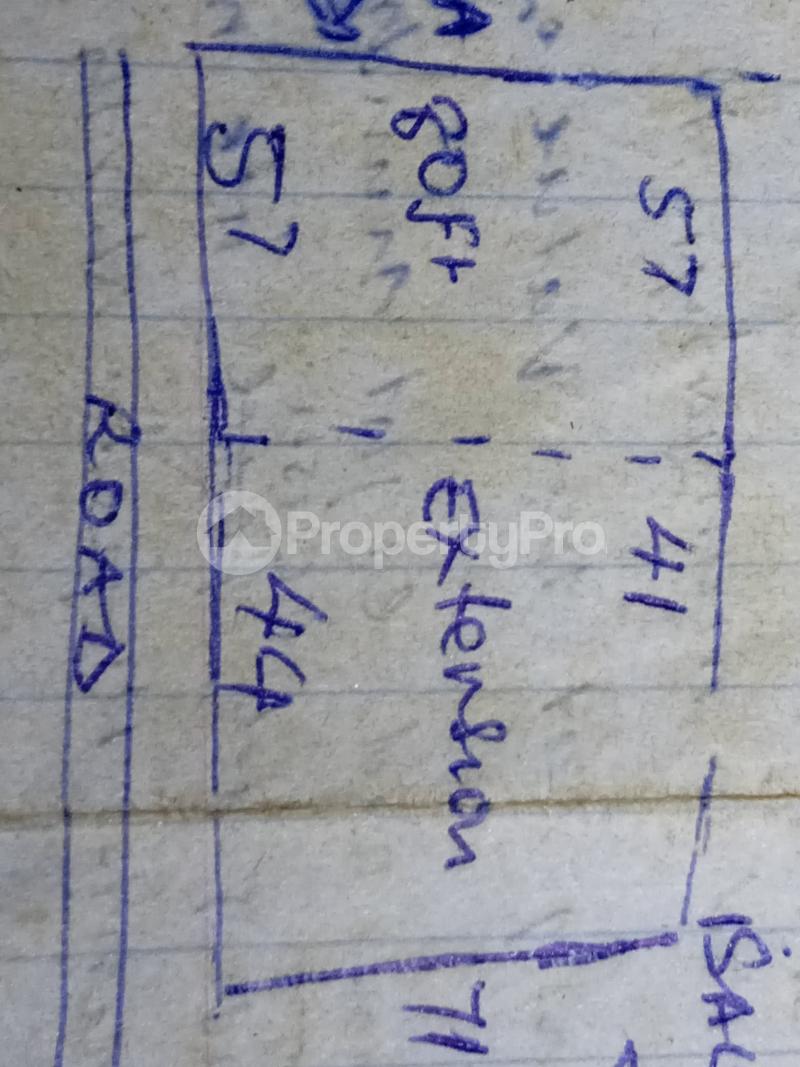 57 41
80ft Extension 71
57 44
ROAD
PropertyPro